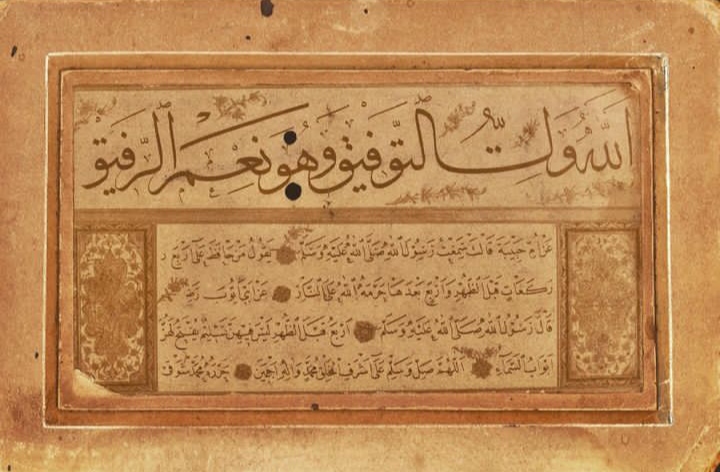 الله ولي التوفيق وهو نعم الرفيق
عن ام حبيبة قالت سمعت رسول الله صلى الله عليه وسلم يقول من حافظ على اربع ر
ركعات قبل الظهر واربع بعدها حرمه الله على النار عن ابي ايوب رضي
قال رسول الله صلى الله عليه وسلم اربع قبل الظهر ليس فيهن تسليم تفتح لهن
ابواب السماء اللهم صل وسلم على اشرف الخلق محمد وآله اجمعين حرره محمد شوقي